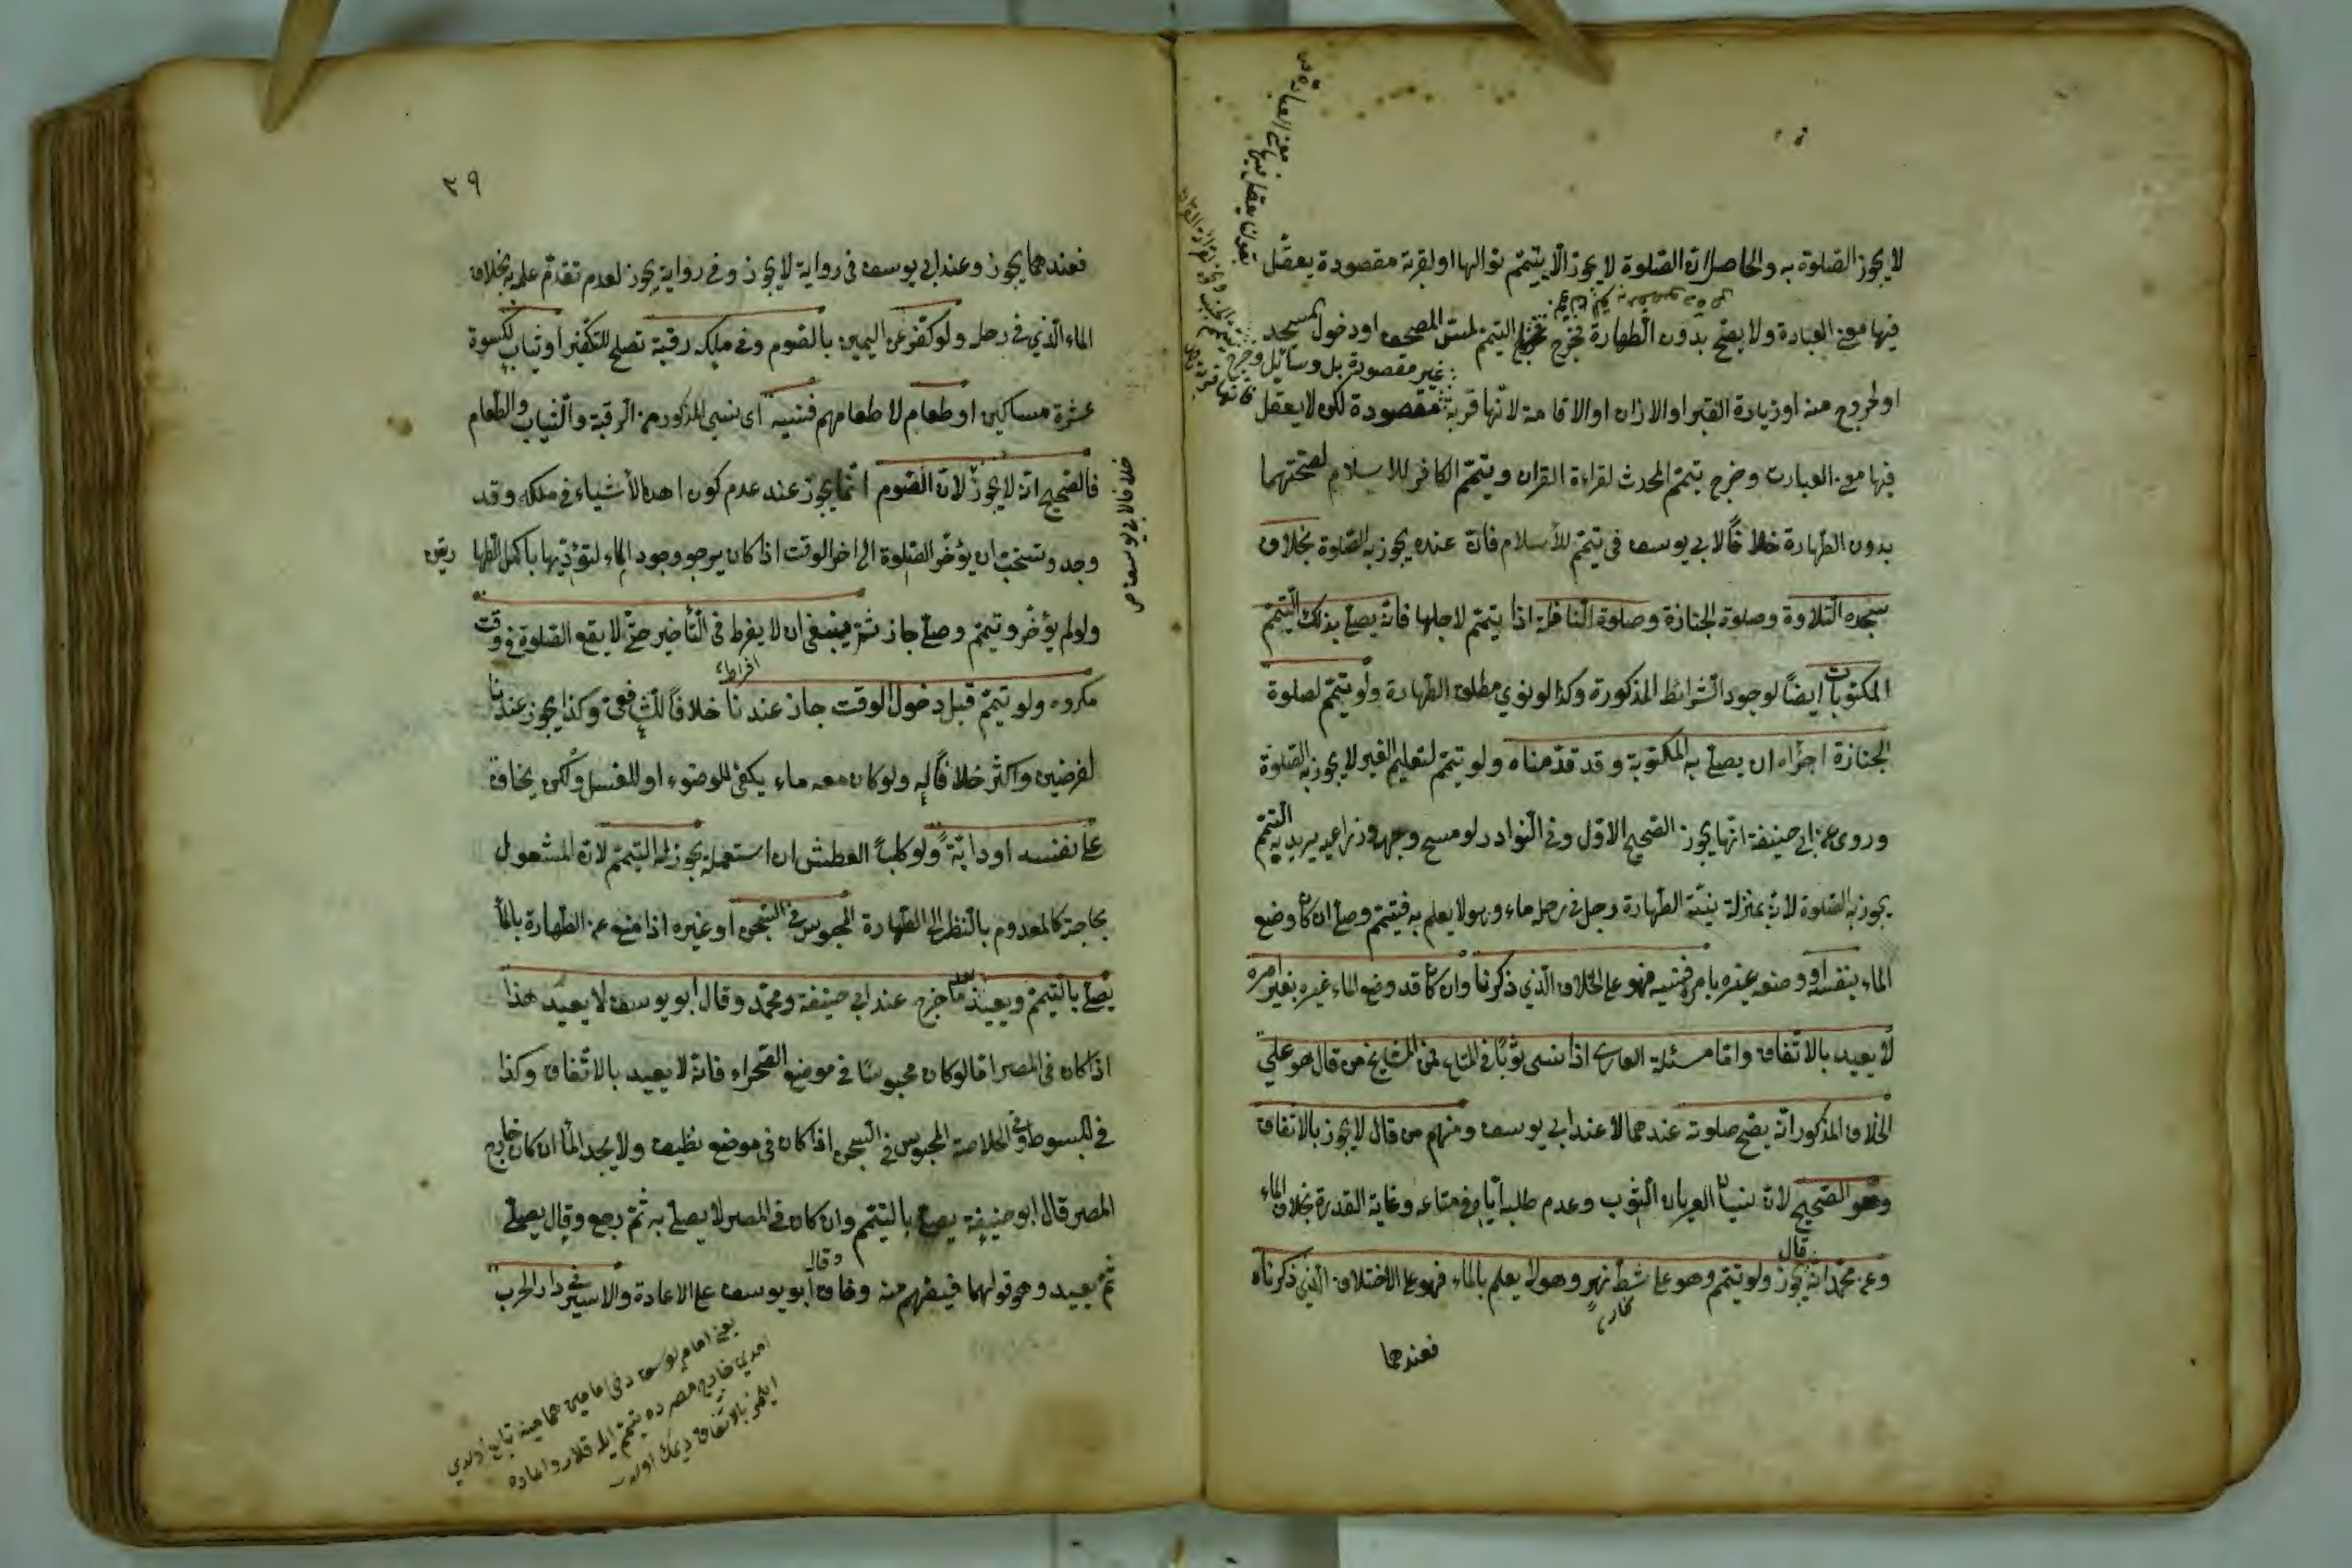 لا يجوز الصلوة به والحاصل ان الصلوة لا يجوز الا بتيمم نوالها او لقربة مقصودة يعقل
فيها معنى العبادة ولا يصح بدون الطهارة فخرج التيمم لمس المصحف او دخول المسجد
غير مقصودة بل وسائل وخرج
او لخروج منه او زيارة القبر او الاذان او الاقامة لانها قربة مقصودة لكن لا يعقل
فيها معنى العبادت وخرج تيمم المحدث لقراءة القران وتيمم الكافر للاسلام لصحتهما
بدون الطهارة خلافاً لابي يوسف في تيمم للاسلام فان عنده يجوز به الصلوة بخلاف
سجدة التلاوة وصلوة الجنازة وصلوة النافلة اذا يتيمم لاجلها فانه يصلى بذلك التيمم
المكتوبات ايضاً لوجود الشرائط المذكورة وكذا لو نوى مطلق الطهارة ولو تيمم لصلوة
الجنازة اجزأه ان يصلى به المكتوبة وقد قدمناه ولو تيمم لتعليم الغير لا يجوز به الصلوة
وروى عن ابى حنيفة انها يجوز الصحيح الاول وفى النوادر لو مسح وجهه وذراعيه يريد به التيمم
يجوز به الصلوة لانه بمنزلة نية الطهارة رجل في رحله ماء وهو لا يعلم به فتيمم وصلى ان كان وضع
الماء بنفسه او وضعه غيره بامره فنسيه فهو على الخلاف الذي ذكرنا وان كان قد وضع الماء غيره بغير امره
لا يعيد بالاتفاق واما مسئلة العارى اذا نسى ثوبًا في المتاع فمن المشايخ من قال هو على
الخلاف المذكور انه يصح صلوته عندهما لا عند ابي يوسف ومنهم من قال لا يجوز بالاتفاق
وهو الصحيح لان نسيان العريان الثوب وعدم طلبه اياه في متاعه وغاية القدرة بخلاف الماء
قال
وعن محمد انه يجوز ولو تيمم وهو على شط نهر وهو لا يعلم بالماء فهو على الاختلاف الذي ذكرناه
فعندهما
٣٩
فعندهما يجوز وعند ابي يوسف في رواية لا يجوز وفي رواية يجوز لعدم تقدم علمه به بخلاف
الماء الذي في رحله ولو كفر عن اليمين بالصوم وفي ملكه رقبة تصلح للتكفير او ثياب لكسوة
عشرة مساكين او طعام لاطعامهم فنسيه اى نسي المذكور من الرقبة والثياب والطعام
فالصحيح انه لا يجوز لان الصوم انما يجوز عند عدم كون احد الاشياء في ملكه وقد
خلافا لابي يوسف ص
وجد وتستحب ان يؤخر الصلوة الى اخر الوقت اذا كان يرجو وجود الماء لتؤديها باكمل الطها رتين
ولو لم يؤخر وتيمم وصلى جاز ثم ينبغي ان لا يفرط في التأخير حتى لا يقع الصلوة في وقت
افراط
مكروه ولو تيمم قبل دخول الوقت جاز عندنا خلافاً للشافعى وكذا يجوز عندنا
لفرضين واكثر خلافاً له ولو كان معه ماء يكفى للوضوء او للغسل ولكن يخاف
على نفسه او دابة ولو كلباً العطش ان استعمله يجوز له التيمم لان المشغول
بحاجته كالمعدوم بالنظر الى الطهارة المحبوس في السجن او غيره اذا منع عن الطهارة بالماء
يصلى بالتيمم ويعيد بعد ما خرج عند ابي حنيفة ومحمد وقال ابو يوسف لا يعيد هذا
اذا كان في المصر اما لو كان محبوسًا في موضع الصحراء فانه لا يعيد بالاتفاق وكذا
في المبسوط وفي الخلاصة المحبوس في السجن اذا كان في موضع نظيف ولا يجد الماء ان كان خارج
المصر قال ابو حنيفة يصلى بالتيمم وان كان في المصر لا يصلى به ثم رجع وقال يصلى
وقال
ثم يعيد وهو قولهما فيفهم منه وفاق ابو يوسف على الاعادة والاسير في دار الحرب